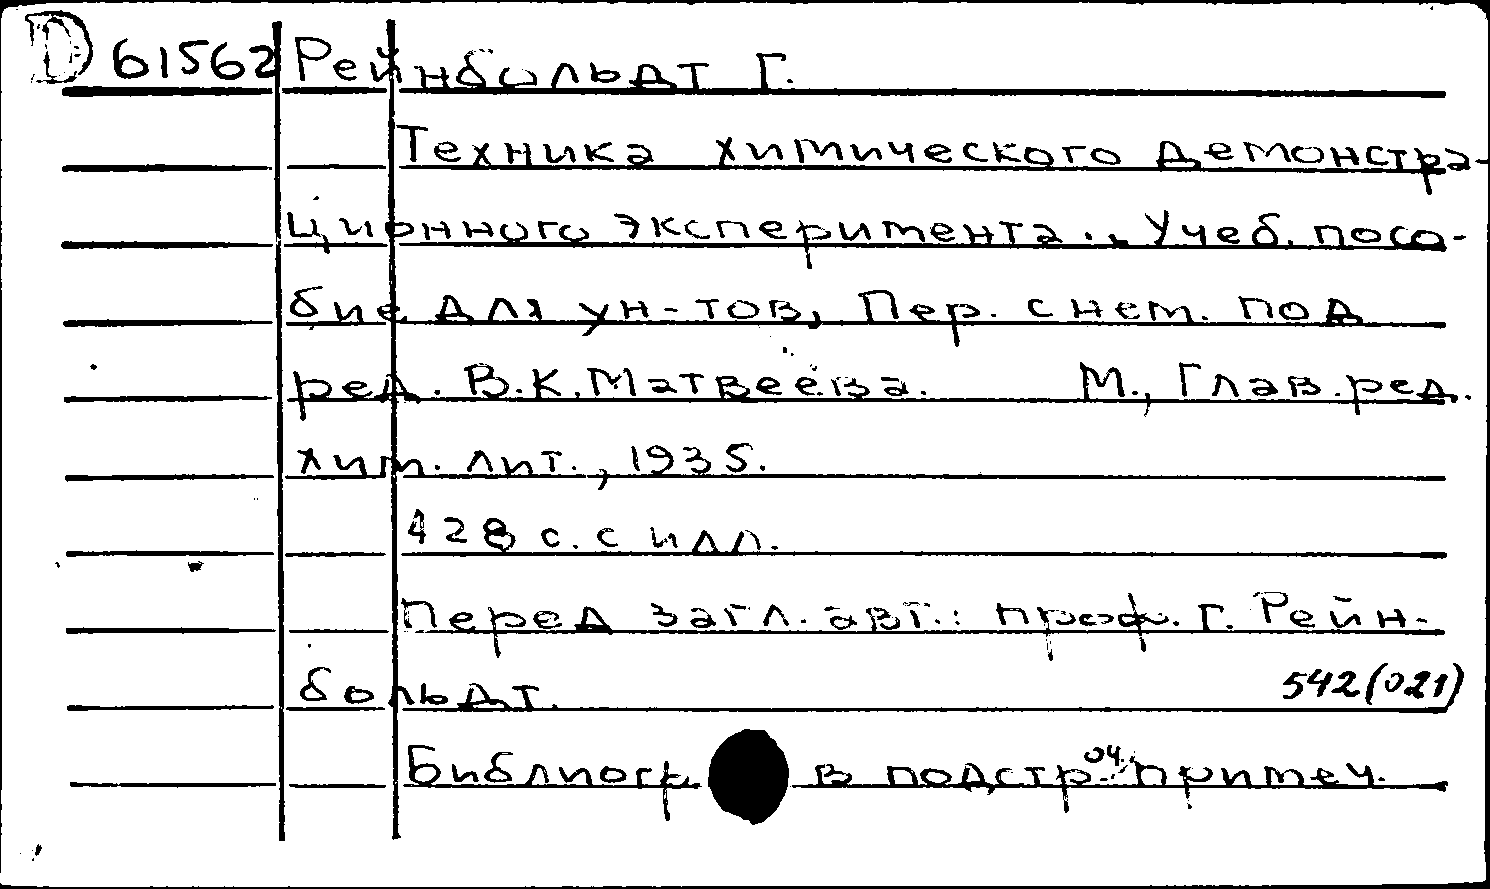 D 61562 Рейнбольдт Г.
Техника химического демонстра-
ционного эксперимента.. Учеб. посо-
бие для ун-тов, Пер. с нем. под
ред. В.К.Матвеева. М., Глав.ред.
хим. лит., 1935.
428 с. с илл.
Перед загл. авт.: проф. Г. Рейн-
больдт.
542(021)
Библиогр. в подстр. примеч.
04